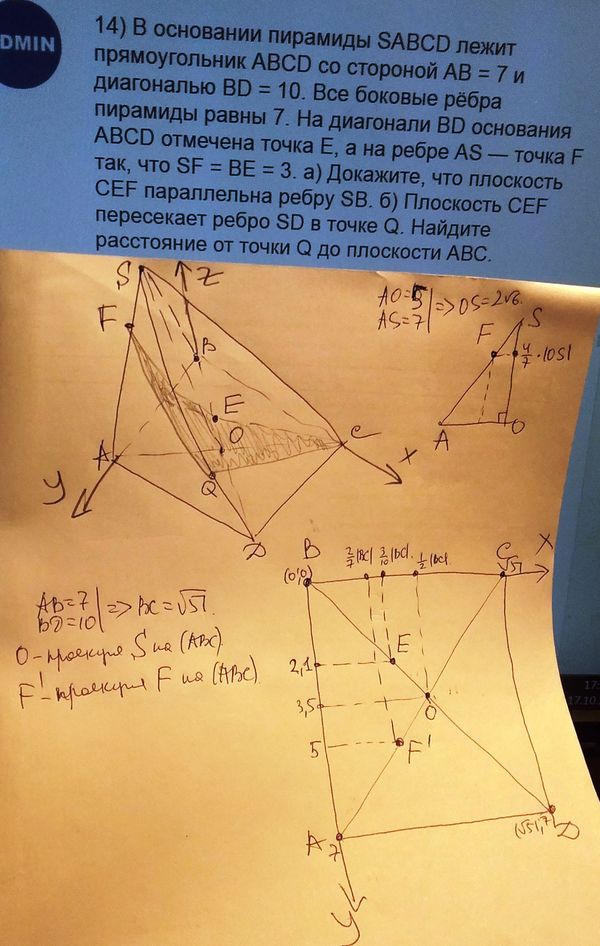 DMIN
14) В основании пирамиды SABCD лежит
прямоугольник ABCD со стороной AB = 7 и
диагональю BD = 10. Все боковые рёбра
пирамиды равны 7. На диагонали BD основания
ABCD отмечена точка E, а на ребре AS — точка F
так, что SF = BE = 3. а) Докажите, что плоскость
CEF параллельна ребру SB. б) Плоскость CEF
пересекает ребро SD в точке Q. Найдите
расстояние от точки Q до плоскости ABC.
S
Z
F
B
E
O
A
C
Q
X
Y
D
AO=5
AS=7 | => OS=2√6.
S
F
4/7 · |OS|
A
O
AB=7
BD=10 | => BC=√51.
O-проекция S на (ABC).
F'-проекция F на (ABC).
B
2/7|BC|
3/10|BC|
1/2|BC|
C
X
(0;0)
√51
E
2,1
3,5
O
5
F'
A
7
(√51;7)
D
Y
17:
17.10.